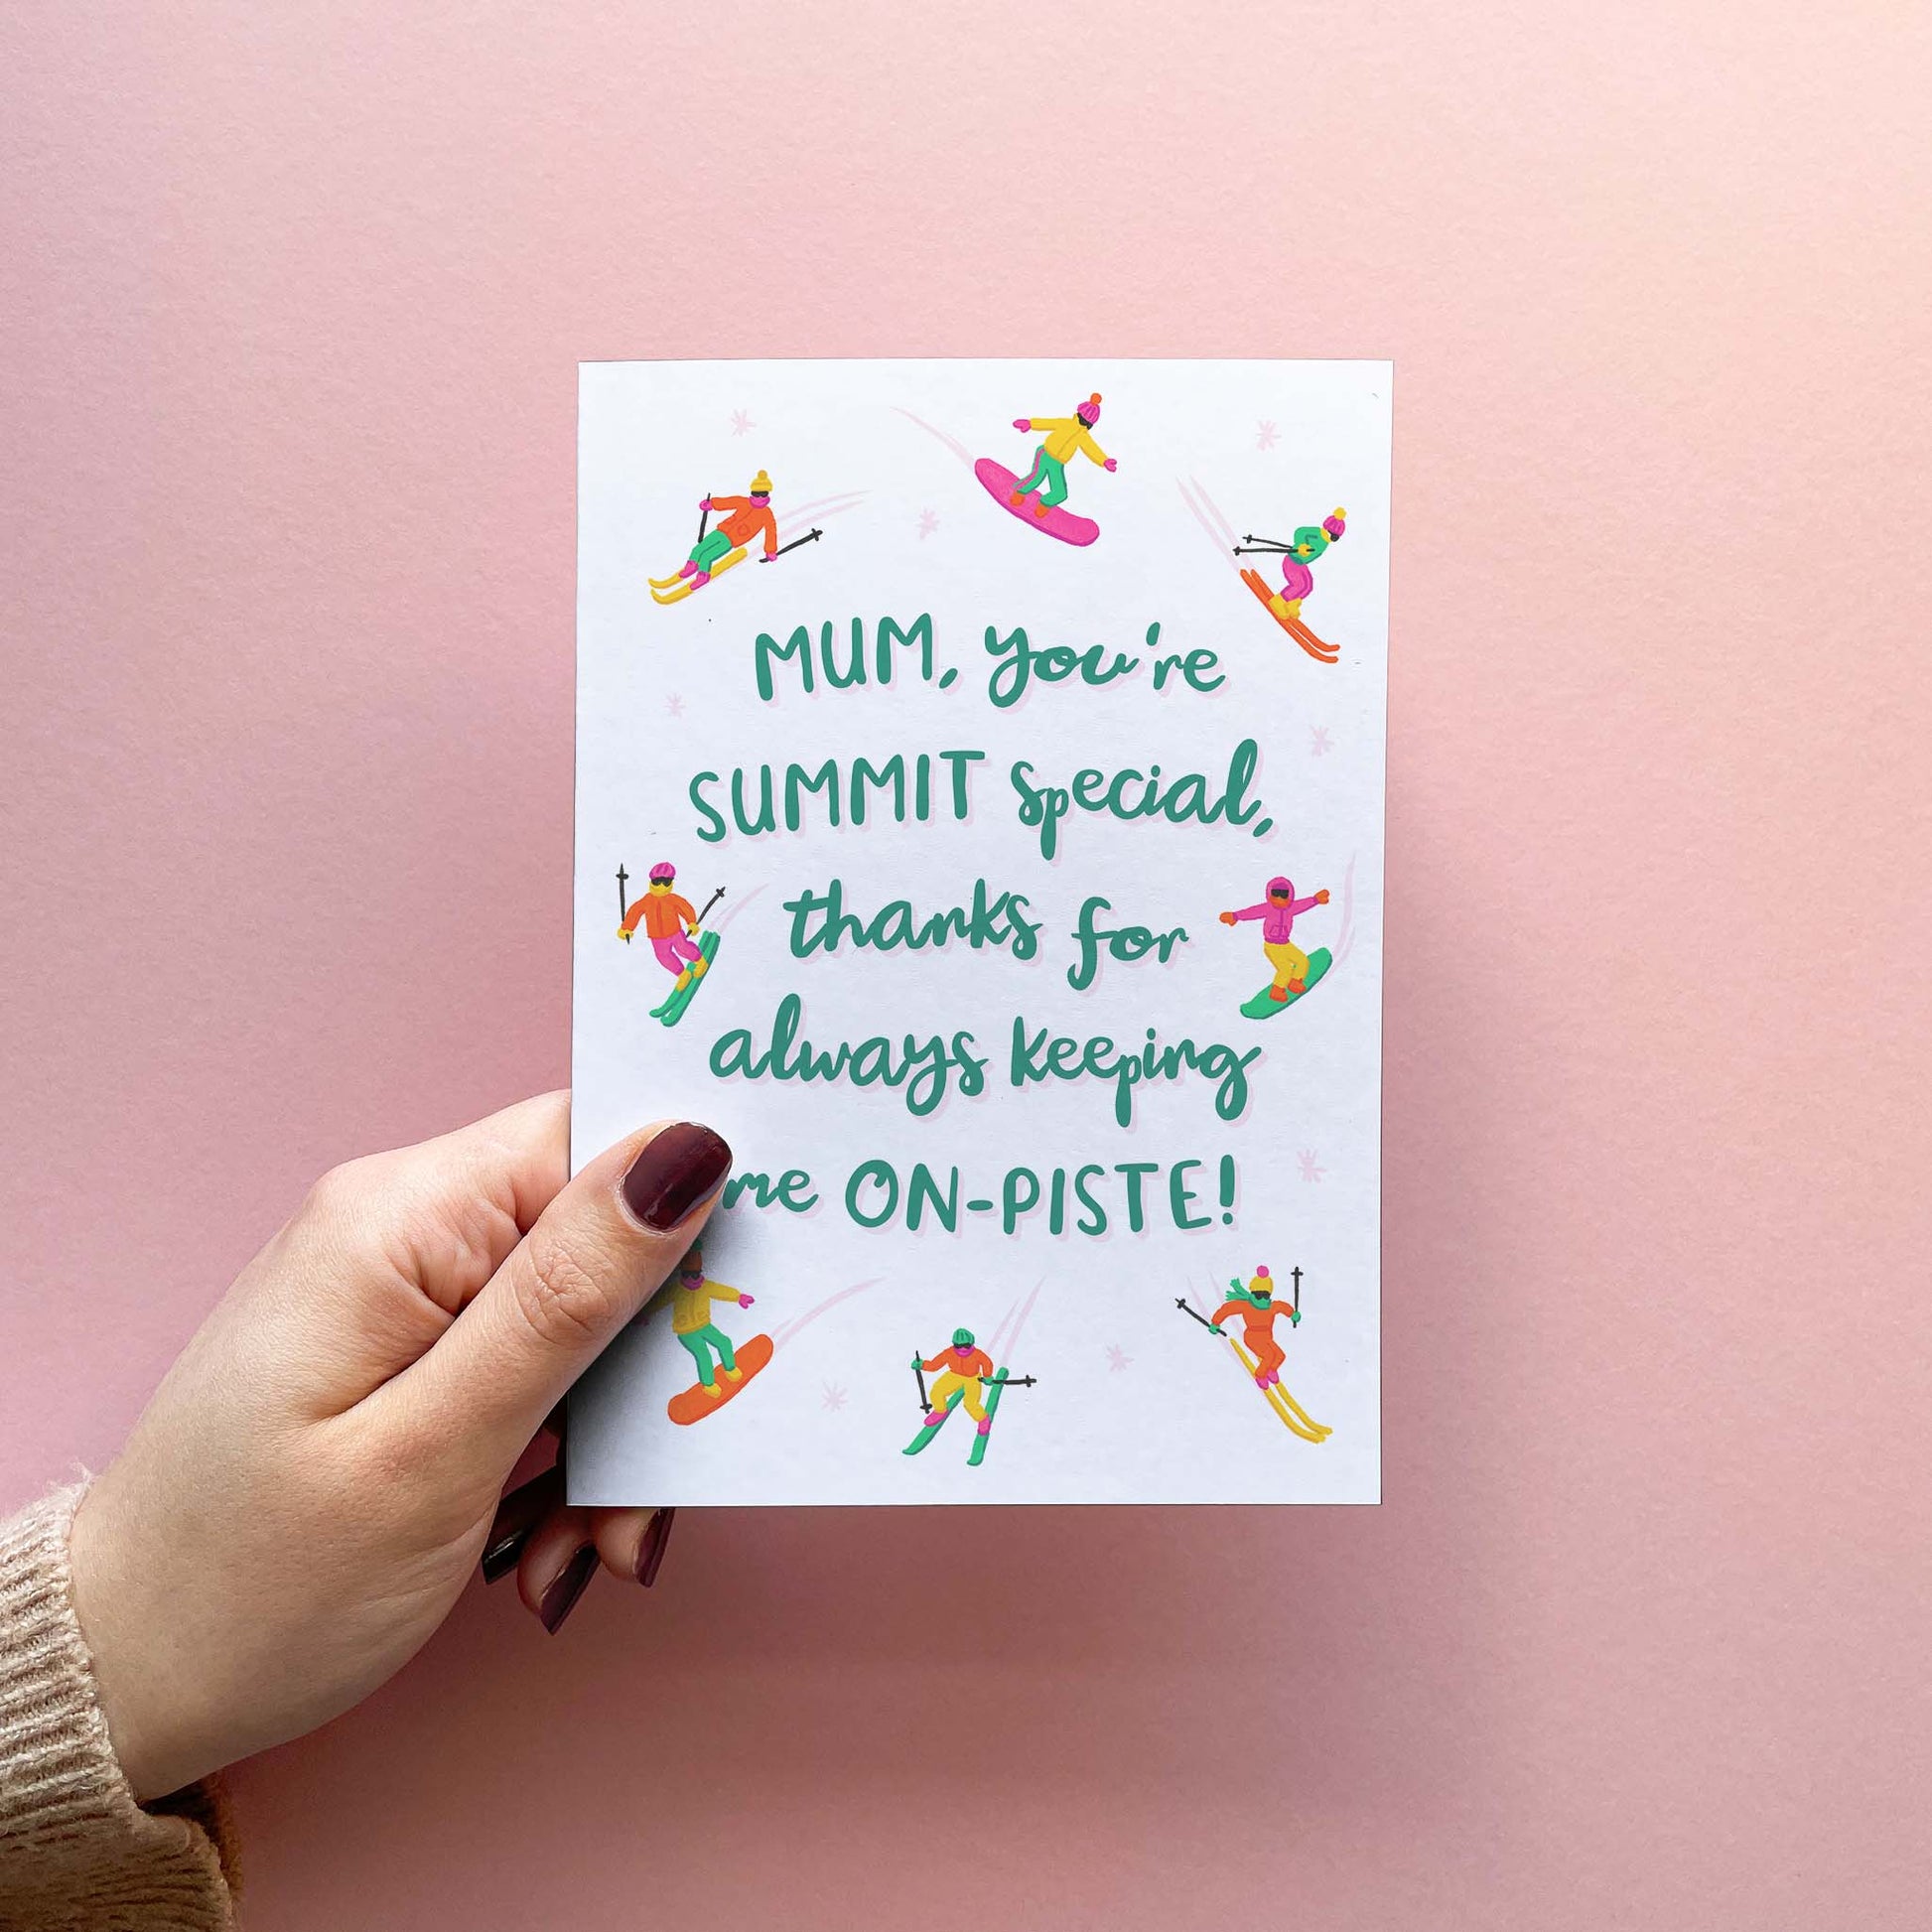 MUM, you're
SUMMIT special,
thanks for
always keeping
me ON-PISTE!